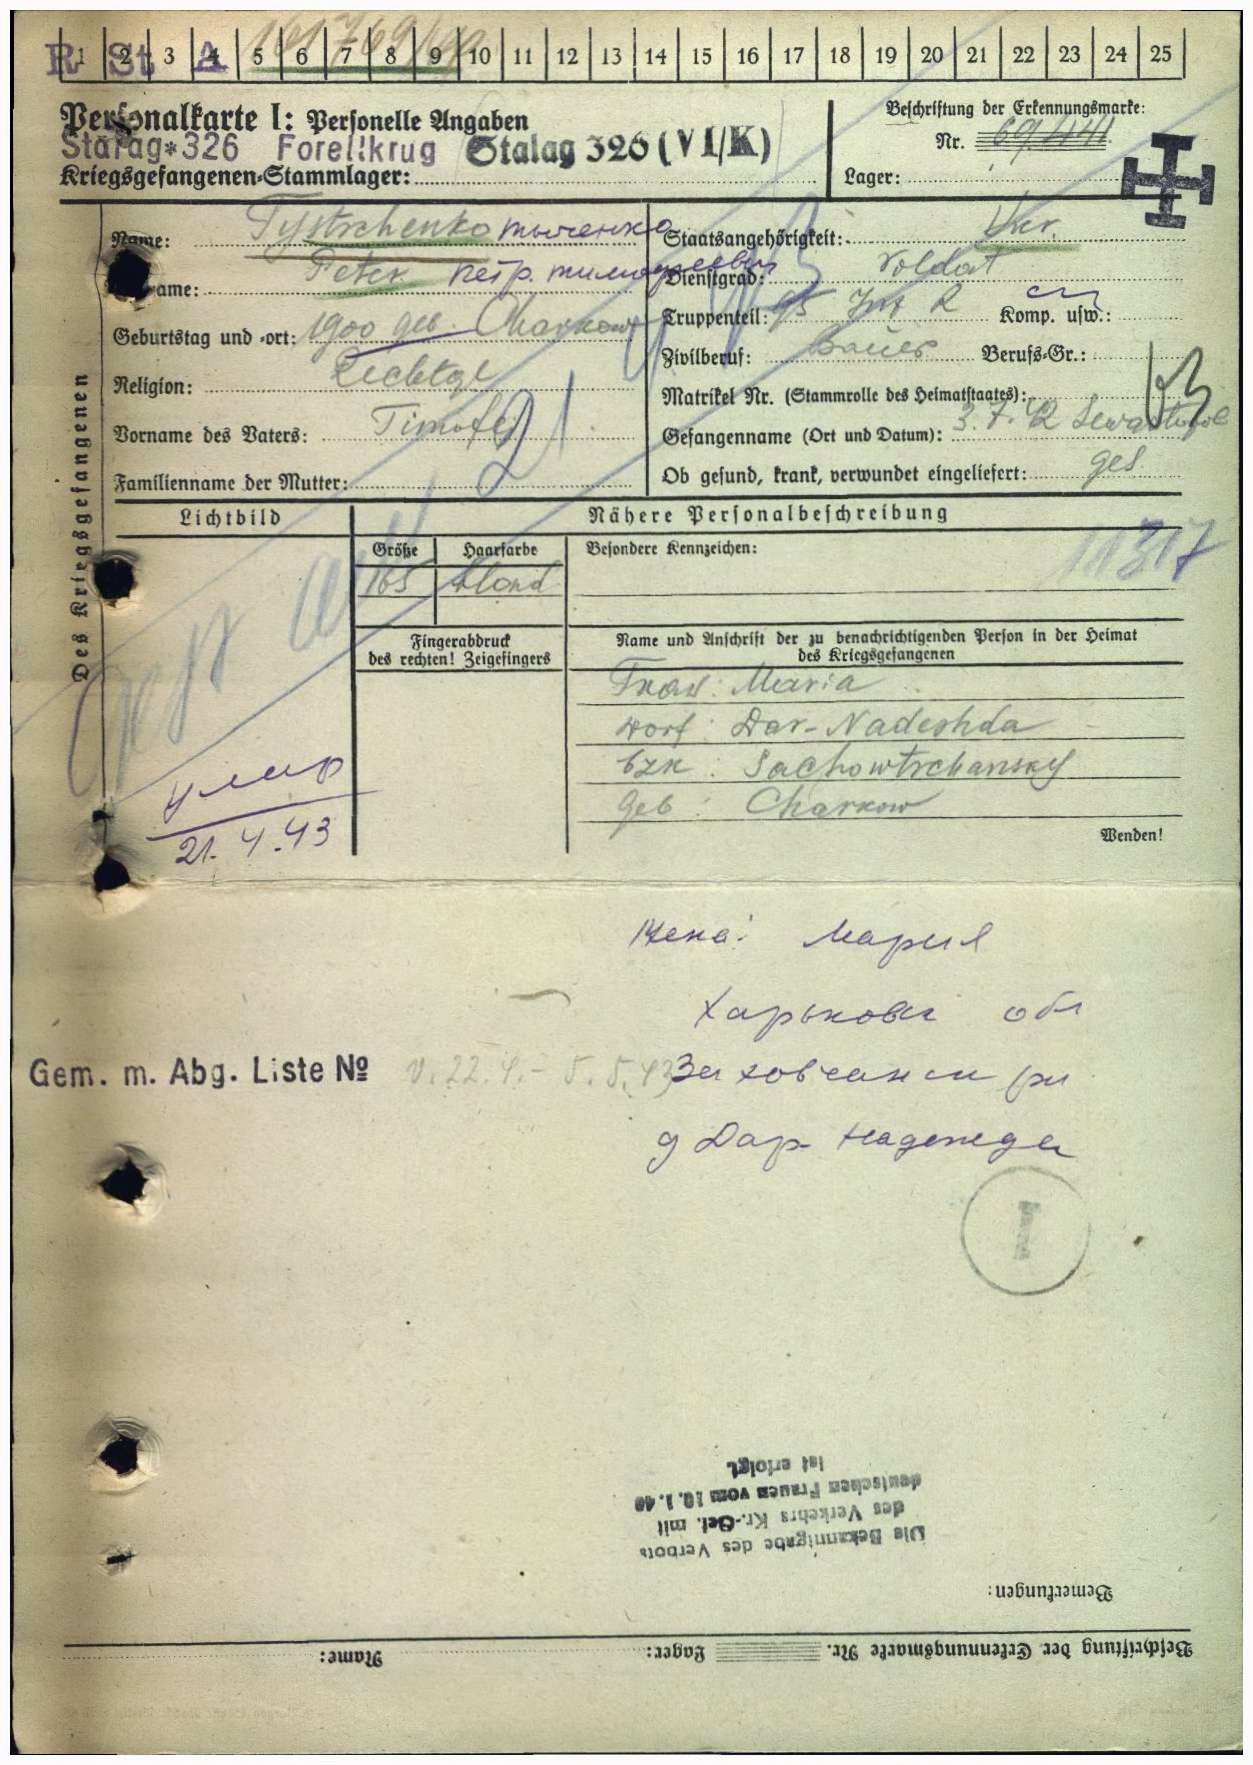 R St A
1 2 3 4 5 6 7 8 9 10 11 12 13 14 15 16 17 18 19 20 21 22 23 24 25
Personalkarte I: Personelle Angaben
Stalag 326 Forellkrug Stalag 326 (VI/K)
Kriegsgefangenen-Stammlager:
Beschriftung der Erkennungsmarke:
Nr.
Lager:
Des Kriegsgefangenen
Name: Tystschenko Тыченко
ame: Peter Петр. Тимофеевич
Geburtstag und -ort: 1900 geb. Charkow
Religion:
Vorname des Vaters: Timofej
Familienname der Mutter:
21
Staatsangehörigkeit: Ukr.
Dienstgrad: Soldat
Truppenteil: 95 Inf R Komp. usw.:
Zivilberuf: Bauer Berufs-Gr.:
Matrikel Nr. (Stammrolle des Heimatstaates):
Gefangenname (Ort und Datum): 3.7.42 Sewastopol
Ob gesund, krank, verwundet eingeliefert: ges
Lichtbild
Nähere Personalbeschreibung
Größe Haarfarbe Besondere Kennzeichen:
165 blond
11317
Fingerabdruck
des rechten! Zeigefingers
Name und Anschrift der zu benachrichtigenden Person in der Heimat
des Kriegsgefangenen
Frau: Maria
Dorf: Dar-Nadeshda
bzk: Sachowtschansky
Geb: Charkow
Wenden!
умер
21.4.43
Жена: Мария
Харьковск обл
Заховчанск рн
д Дар-Надежда
Gem. m. Abg. Liste № v. 22.4.- 5.5.43
I
Die Bekanntgabe des Verbots
des Verkehrs Kr.-Gef. mit
deutschen Frauen vom 10.1.40
ist erfolgt.
Bemerkungen:
Beschriftung der Erkennungsmarke Nr. Lager: Name: